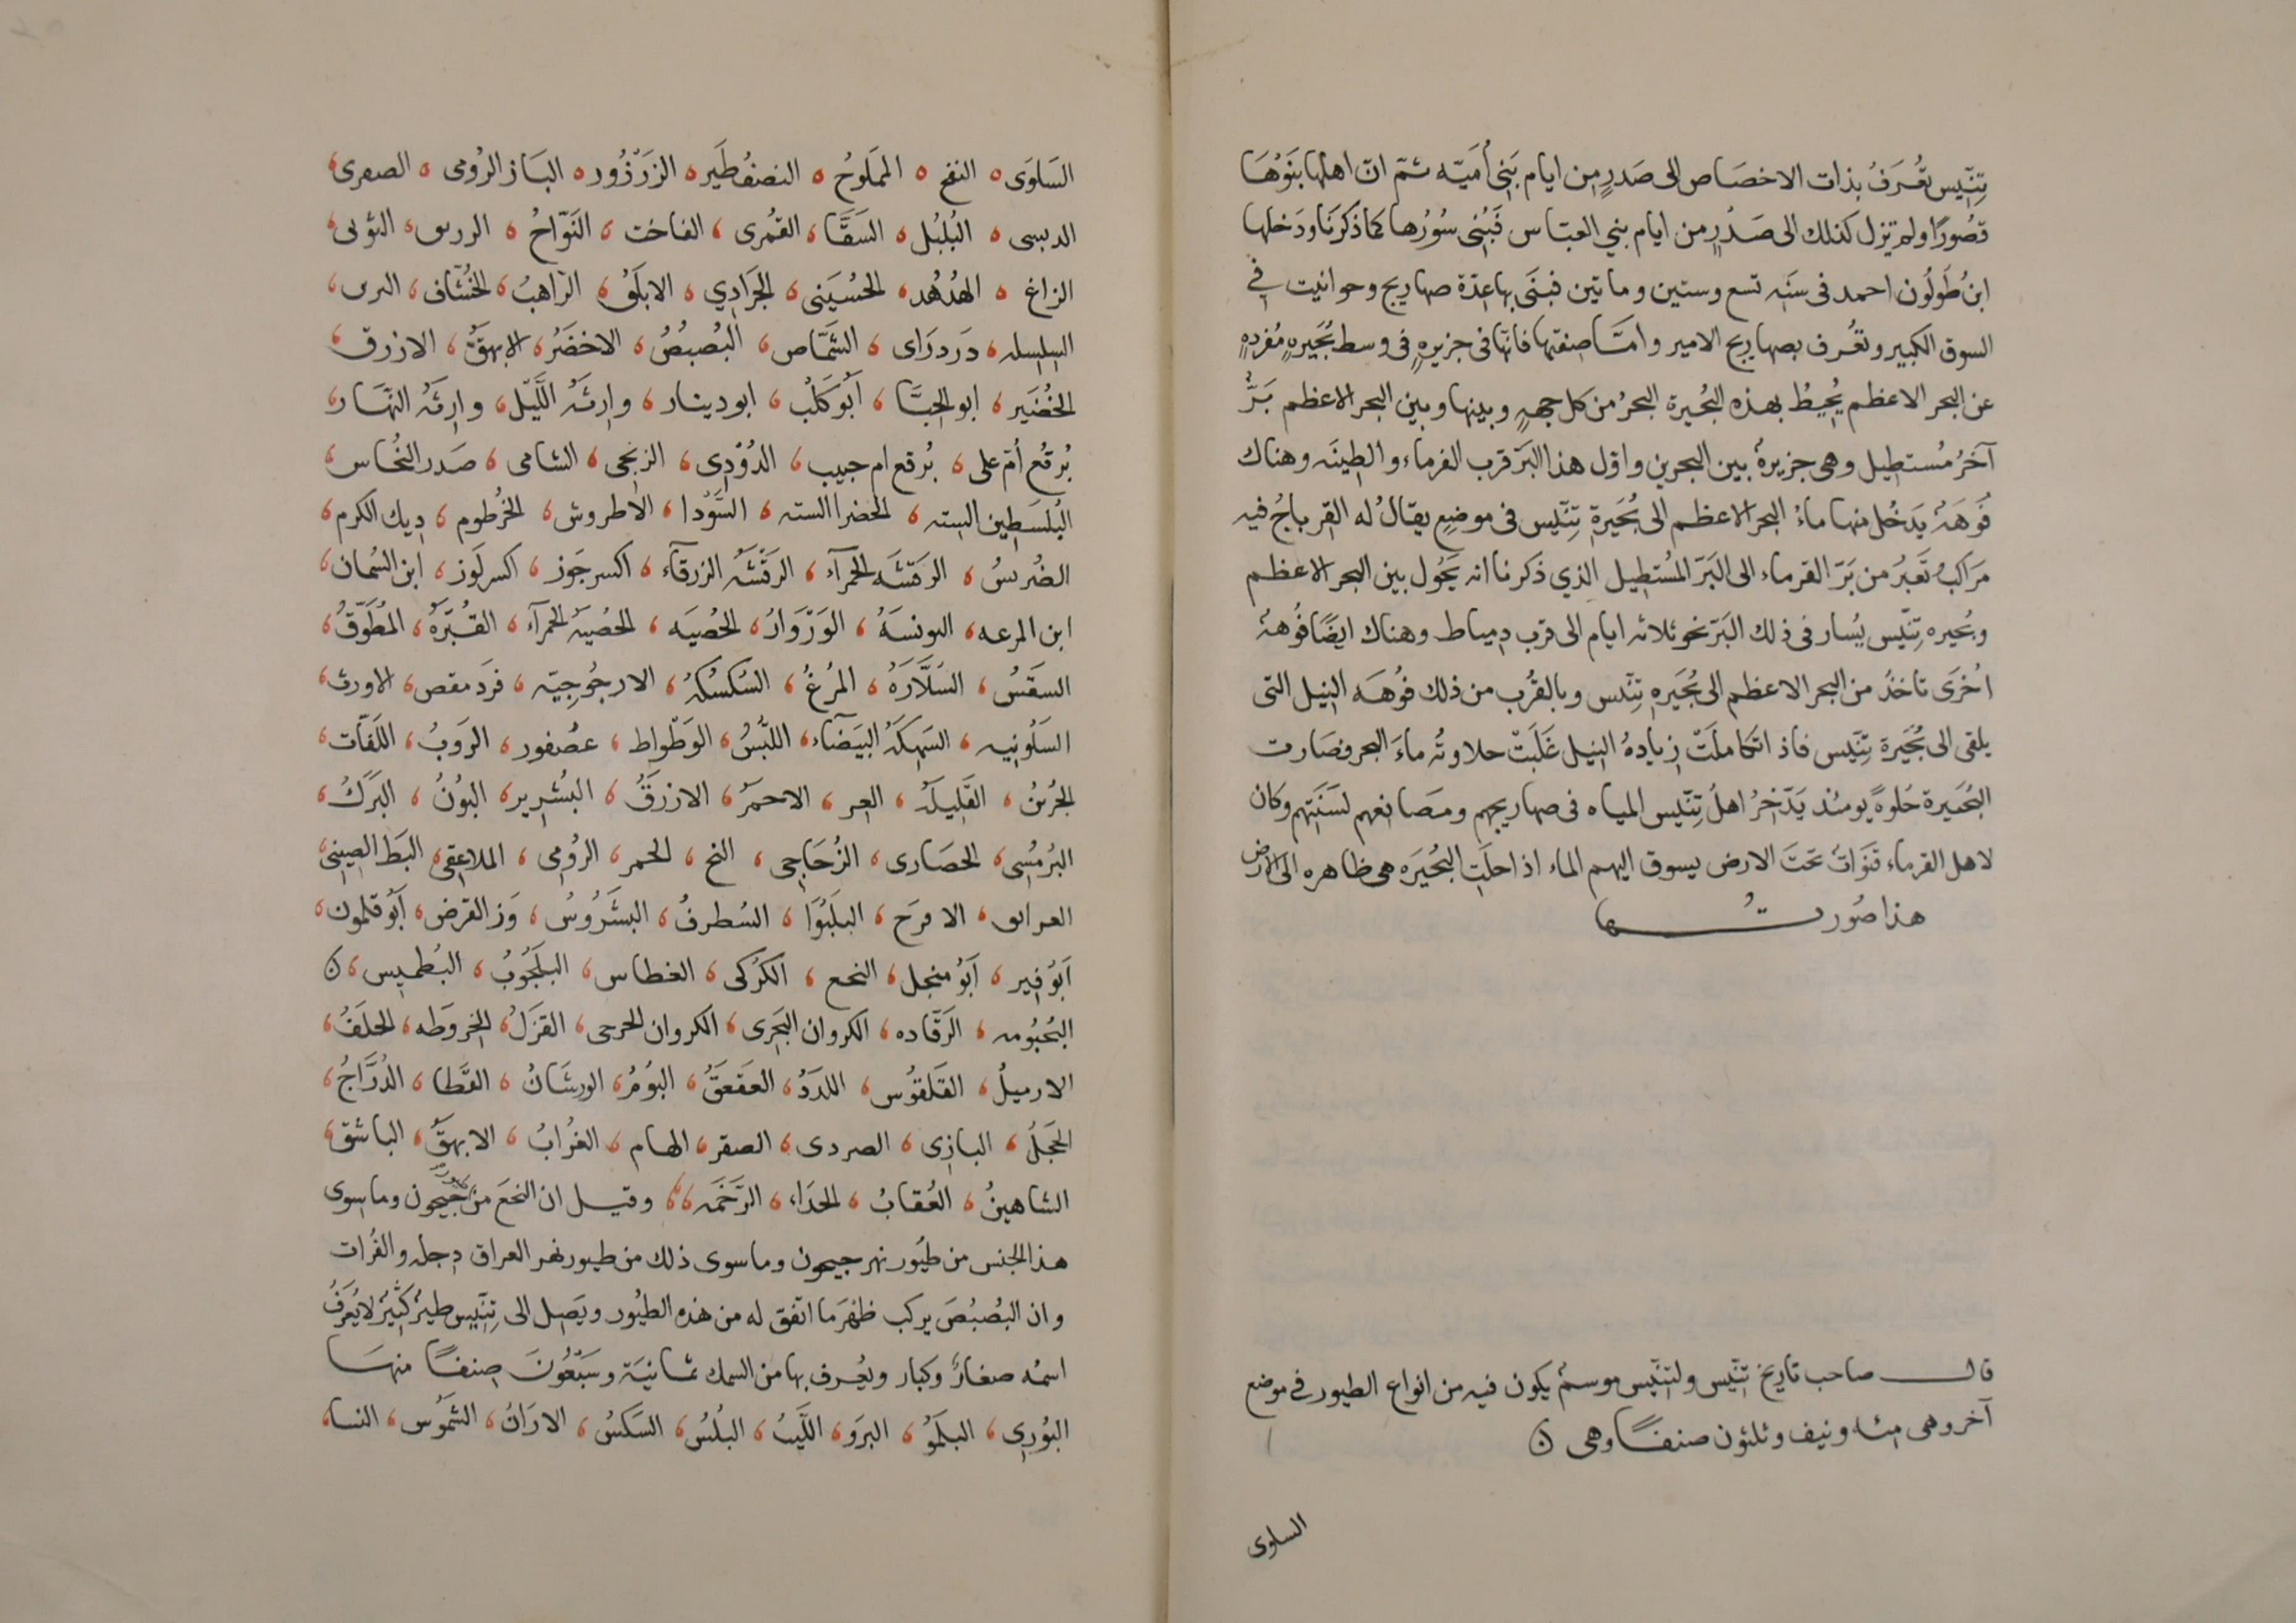 تِنّيس تُعرَفُ بذات الاخصَاص الى صَدرٍ من ايام بَنِي اُميّه ثمّ انّ اهلها بنَوُهَا
قصُورًا ولم تزل كذلك الى صَدْرٍ من ايام بني العبّاس فَبُنِى سُورُها كما ذكرنَا ودَخلها
ابنُ طُولُون احمد فى سنَه تسع وستين وماتين فبنَى بها عِدّة صهاريج وحوانيت في
السوق الكبير وتعُرف بصهاريج الامير وامّا صِفتها فانّها فى جزيرهٍ فى وسط بُحَيرهٍ مُفردهٍ
عن البحر الاعظم يُحيطُ بهذه البُحيرة البحرُ من كل جههٍ وبينها وبين البحر الاعظم بَرٌّ
آخرُ مُستطِيل وهى جزيرةٌ بين البحرين واوّل هذا البَرّ قرب الفرماء والطِينَه وهناك
فُوهَةٌ يَدخُل منها ماءُ البحر الاعظم الى بُحَيرة تِنّيس فى موضعٍ يقالُ له القرباجُ فيه
مرَاكبُ تَعبرُ من بَرّ الفرماء الى البَرّ المُستطِيل الذي ذكرنا انه يَحُول بين البحر الاعظم
وبُحيره تِنّيس يُسار فى ذلك البَرّ نحو ثلاثه ايام الى قرب دِمياط وهناك ايضًا فُوهةٌ
اُخرَى تاخذُ من البحر الاعظم الى بُحَيره تِنّيس وبالقُرب من ذلك فوُهَه النِيل التى
يلقى الى بُحَيرة تِنّيس فاذ اتكاملَتْ زيادهُ النِيل غَلَبَتْ حلاوتُه ماءَ البحر فصَارت
البُحَيرة حُلوةً يومئذ يَدّخِرُ اهلُ تِنّيس المياه فى صهاريجهم ومصَانعهم لسَنَتهم وكان
لاهل الفرماء قنَوَاتٌ تحَتَ الارض يسوق اليهم الماء اذا حلَتِ البُحَيرَه هى ظاهره الى الارض
هذا صُورتُها
قال صاحب تاريخ تِنّيس ولتِنّيس موسمٌ يكون فيه من انواع الطيور في موضع
آخر وهى مِئه ونيف وثلثون صنفًا وهى
السلوى
السَلوَى النفح المَملوحُ النصنفُطَير الزَرْزُور البَاز الرُومى الصفرى
الدبسى البُلبُل السَقَّا القمُرى الفاخت النَوّاحُ النوبى
الزاغ الهُدهُد الحُسَينى الجَرَادِي الابلَقُ الرّاهبُ الخُشّاف
السِلسِله دَردرَاى الشَمّاص البُصبُصُ الاخضَرُ الابهَقُ الازرق
الخُضَير ابو الحِنّا اَبو كَلْب ابو دينار وارِثَه اللَّيل وارِثَه النّهَار
بُرقعُ اُمّ على بُرقع ام حبيب الدُوْدِى الزنجى الشامى صَدر النُحَاس
البُلسَطِين السته الخضرا السته السَّوْدا الاطروش الخُرطوم دِيك الكرم
الضُرسُ الرَقشَه الحمَرآء الرَقشَه الزرقآء اكسر جَوز اكسر لَوز ابن السُمان
ابن المرعه اليونسَهُ الوَرْوَارُ الخُصيَه الخُصيَه الحمرآء القُبّرَهُ المُطَوّقُ
السقسُ السُلَّارَهُ المُرعُ السُكسُكهُ الارجُوجِيّه فرَد مقص الاورث
السَلُونيه السَهِكَهُ البَيضَآء اللَبسُ الوَطْواط عصُفور الرَوبُ اللَفّات
الجُربُ القَلِيلَه الاحمَرُ الازرَقُ البُشرِير البوُنُ البَرَكُ
البُرمُسِى الحصَارى الزُجَاجى النح الحمر الرُومِى الملاعِقى البَط الصِينى
الاقرَح البلَبُوا السُطرفُ البشَرُوسُ وَز القرض اَبوُ قلمون
اَبوُ قِير اَبوُ منجل النحع الكُرْكى الغطاس البلَجُوبُ البُطميس
البُحبُومه الرَقّاده الكروان البَحرى الكروان الحرحى القزَلُ الخروَطه الحلَفُ
الارميلُ القَلقوُس اللدَدُ العَقعَقُ البوُمُ الورشَانُ القَطا الدُرّاجُ
الحجَلُ البازِى الصردى الصقر الهام الغُرابُ الابهقُ الباشق
الشاهينُ العُقابُ الحدَاء الرَخَمَه وقيل ان النحَعَ من جَيحون وما سوى
هذا الجنس من طيُور نهر جيحون وما سوى ذلك من طيور نهر العراق دِجله والفُرات
وان البُصبُصَ يركب ظهرَ ما اتّفق له من هذه الطيُور ويَصِل الى تِنّيس طيرٌ كثيرٌ لا يُعرَفُ
اسمُه صغارٌ وكبار ويعُرف بها من السمك ثمانيَة وسَبعُونَ صِنفًا منهَا
البُورِى البلَمُو البرَو اللَّبُ البُلسُ السَكسُ الارَانُ الشَموُس النسا